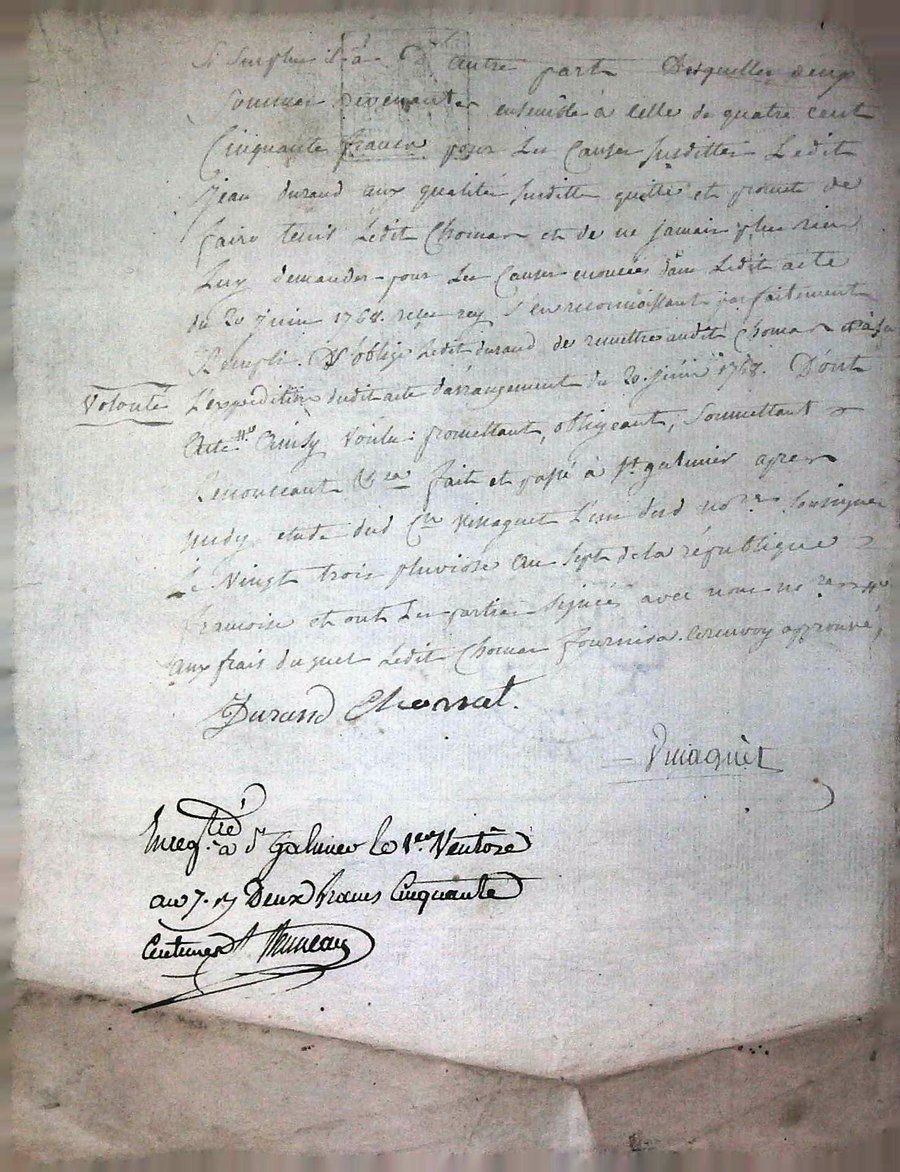 surplus à d'autre part desquelles deux
sommes revenantes ensemble à celle de quatre cent
Cinquante francs pour les Causes susdittes Ledit
jean durand aux qualités susditte quitte et promet de
faire tenir Ledit Chomat et de ne jamais plus rien
Luy demander pour les Causes enoncées dans Ledit acte
du 20 juin 1768. s'en reconnoissant parfaitement
Rempli. S'oblige Ledit durand de remettre audit Chomat et à sa
Volonté L'expedition dudit acte d'arrangement du 20. juin 1768. Dont
Acte. Ainsy Voulu: promettant, obligeant, soumettant
Renonceant &ca fait et passé à st. galmier apres
midy etude dud Cn Vinaguet L'un desd no.res soussignés
Le Vingt trois pluviose an sept de la république
francoise et ont les parties signées avec nous no.res
aux frais duquel Ledit Chomat fournira renvoy approuvé,
Durand Chomat.
Vinaguet
Enregtré à St Galmier le 1er Ventôse
an 7. Deux francs Cinquante
Centimes